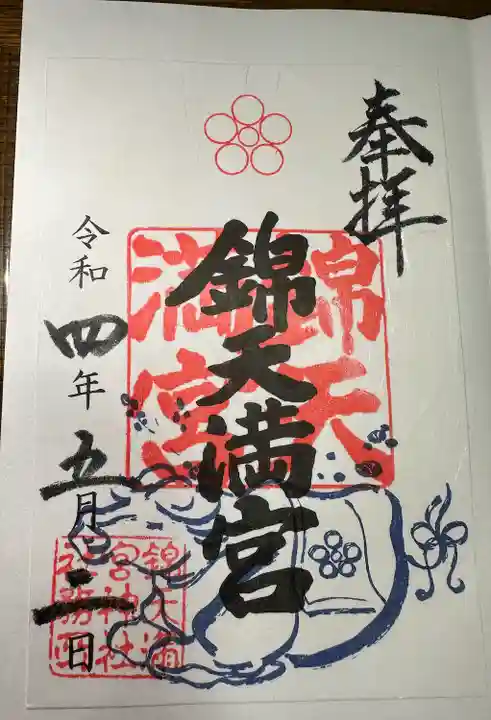 奉拝
錦天満宮
錦天
満宮
令和四年五月三日
錦天満
宮神社
社務所